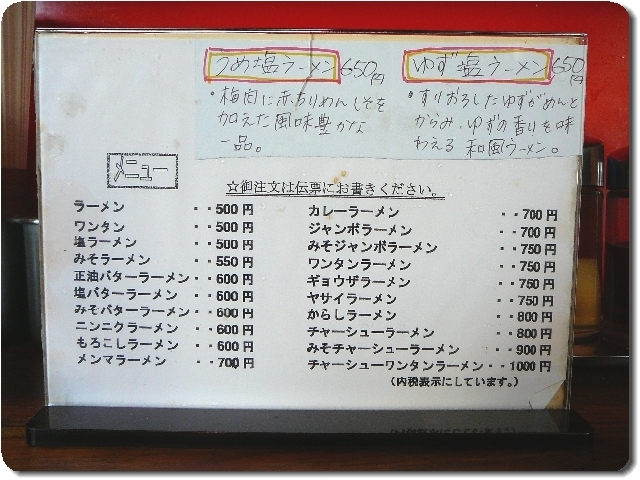 うめ塩ラーメン 650円
・梅肉に赤ちりめんしそを
加えた風味豊かな
一品。
ゆず塩ラーメン 650円
・すりおろしたゆずがめんと
からみ、ゆずの香りを味
わえる 和風ラーメン。
メニュー
☆御注文は伝票にお書きください。
ラーメン ・・500円
ワンタン ・・500円
塩ラーメン ・・500円
みそラーメン ・・550円
正油バターラーメン・・600円
塩バターラーメン ・・600円
みそバターラーメン・・600円
ニンニクラーメン ・・600円
もろこしラーメン ・・600円
メンマラーメン ・・700円
カレーラーメン ・・700円
ジャンボラーメン ・・700円
みそジャンボラーメン ・・750円
ワンタンラーメン ・・750円
ギョウザラーメン ・・750円
ヤサイラーメン ・・750円
からしラーメン ・・800円
チャーシューラーメン ・・800円
みそチャーシューラーメン ・・900円
チャーシューワンタンラーメン・・1000円
（内税表示にしています。）